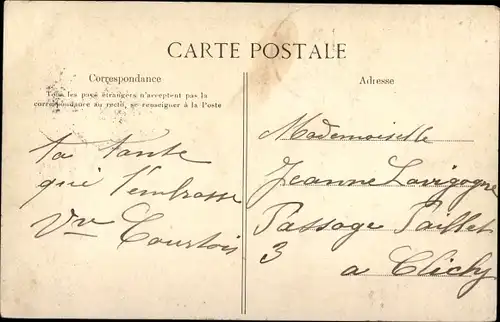 CARTE POSTALE
Correspondance
Tous les pays étrangers n'acceptent pas la
correspondance au recto, se renseigner à la Poste
ta tante
qui t'embrasse
Vve Courtois
Adresse
Mademoiselle
Jeanne Lavigogne
Passage Paillet
3
a Clichy